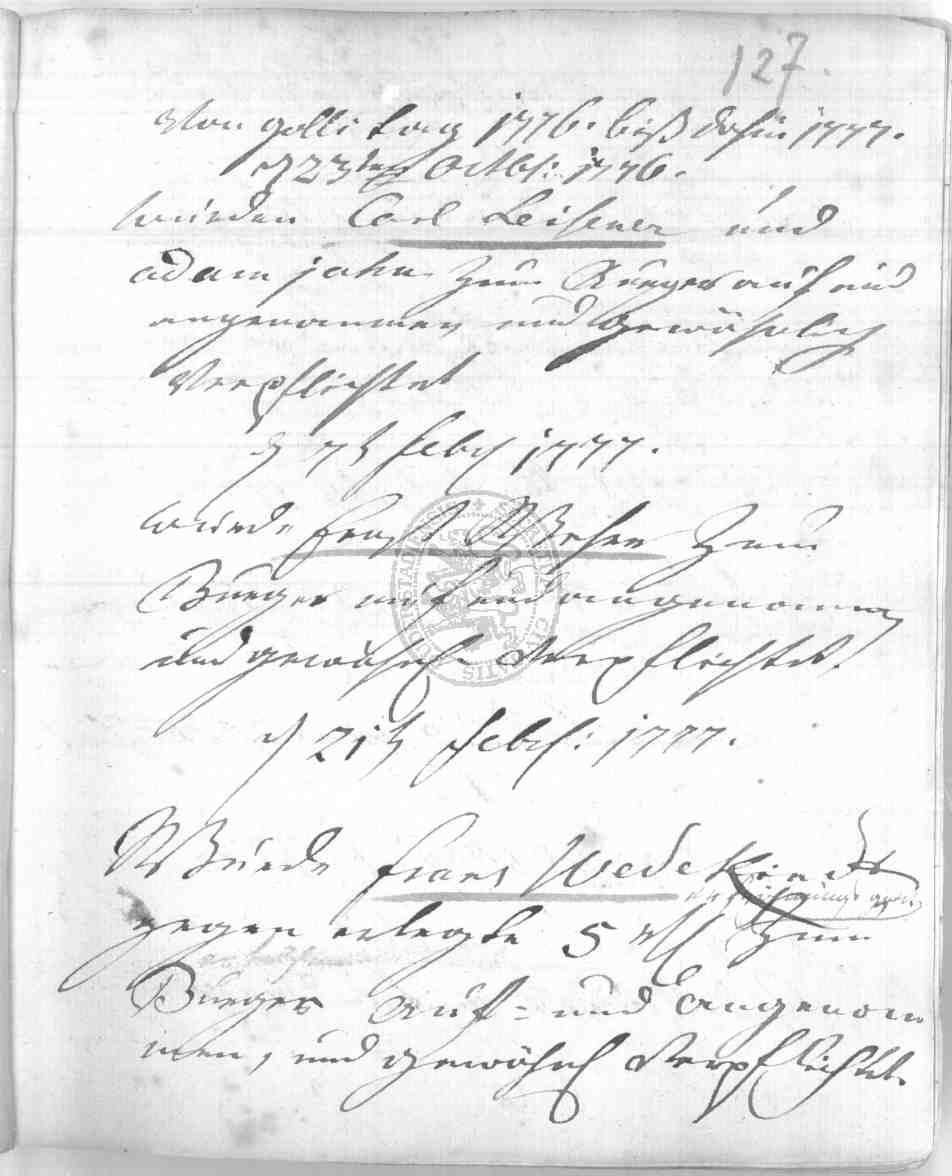 127.
Von galli tag 1776. biß dahin 1777.
d 23ten Octbr: 1776.
wurden Carl Leisener und
adam jahn zum Burger auf und
angenommen und gewöhnlich
Verpflichtet
d 7t Febr 1777.
wurde Ernst Weher zum
Burger auf und angenommen
und gewöhnl. Verpflichtet.
d 21t Febr: 1777.
Wurde Frans Wedekindt
gegen erlegte 5 rthl zum
Burger auf- und angenom
men, und gewöhnl Verpflichtet.